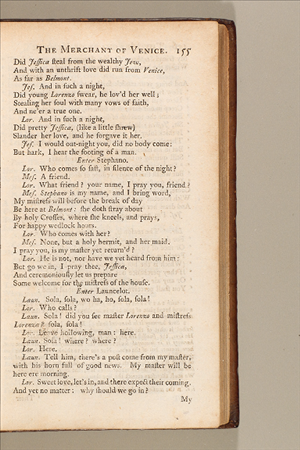 The Merchant of Venice. 155
Did Jeſſica ſteal from the wealthy Jew,
And with an unthrift love did run from Venice,
As far as Belmont.
Jeſ. And in ſuch a night,
Did young Lorenzo ſwear, he lov'd her well;
Stealing her ſoul with many vows of faith,
And ne'er a true one.
Lor. And in ſuch a night,
Did pretty Jeſſica, (like a little ſhrew)
Slander her love, and he forgave it her.
Jeſ. I would out-night you, did no body come:
But hark, I hear the footing of a man.
Enter Stephano.
Lor. Who comes ſo faſt, in ſilence of the night?
Meſ. A friend.
Lor. What friend? your name, I pray you, friend?
Meſ. Stephano is my name, and I bring word,
My miſtreſs will before the break of day
Be here at Belmont: ſhe doth ſtray about
By holy Croſſes, where ſhe kneels, and prays,
For happy wedlock hours.
Lor. Who comes with her?
Meſ. None, but a holy hermit, and her maid.
I pray you, is my maſter yet return'd?
Lor. He is not, nor have we yet heard from him:
But go we in, I pray thee, Jeſſica,
And ceremoniouſly let us prepare
Some welcome for the miſtreſs of the houſe.
Enter Launcelot.
Laun. Sola, ſola, wo ha, ho, ſola, ſola!
Lor. Who calls?
Laun. Sola! did you ſee maſter Lorenzo and miſtreſs
Lorenza? ſola, ſola!
Lor. Leave hollowing, man: here.
Laun. Sola! where? where?
Lor. Here.
Laun. Tell him, there's a poſt come from my maſter,
with his horn full of good news. My maſter will be
here ere morning.
Lor. Sweet love, let's in, and there expect their coming.
And yet no matter: why ſhould we go in?
My